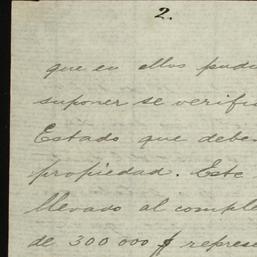 2.
que en ellos pudi
suponer se verifi
Estado que debe
propiedad. Este
llevado al comple
de 300 000 $ repres